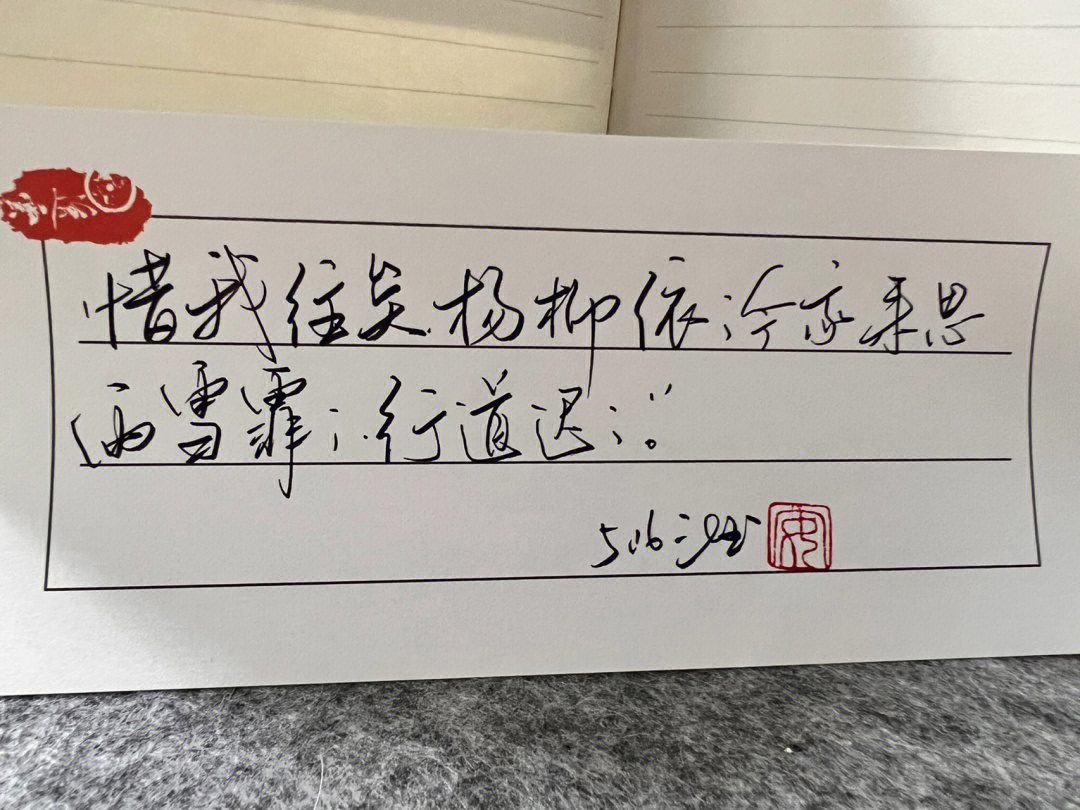 惜我往矣杨柳依〻今我来思
雨雪霏〻行道迟〻。
5.16
安